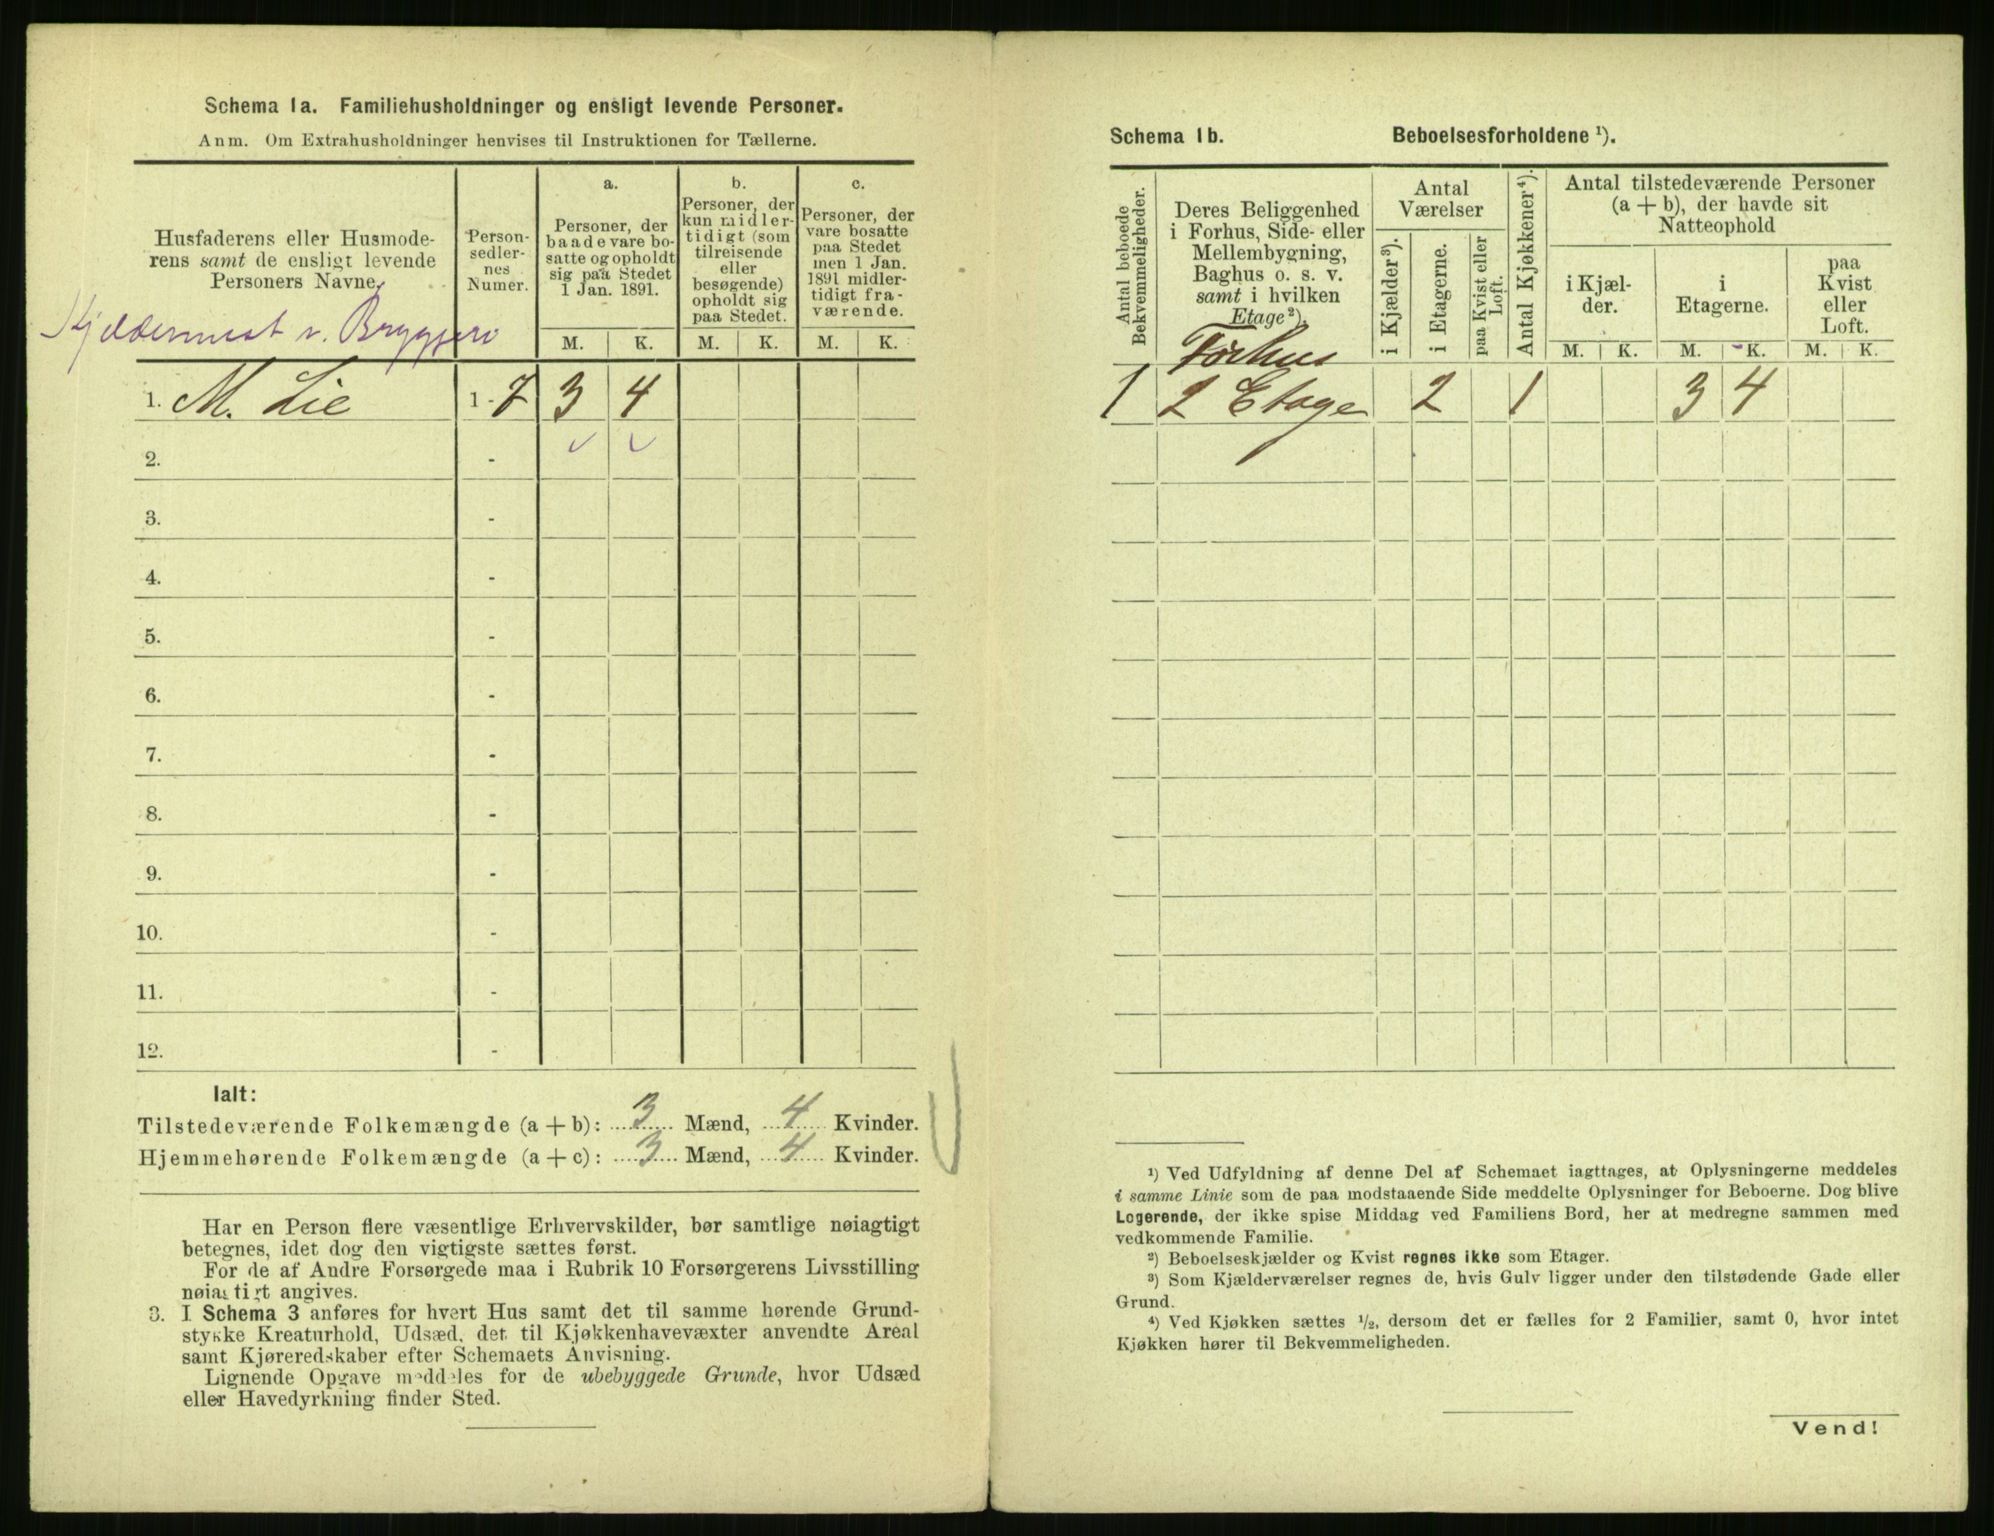 Schema 1a. Familiehusholdninger og ensligt levende Personer.
Anm. Om Extrahusholdninger henvises til Instruktionen for Tællerne.
Husfaderens eller Husmode-
rens samt de ensligt levende
Personers Navne.
Person-
sedler-
nes
Numer.
a.
Personer, der
baade vare bo-
satte og opholdt
sig paa Stedet
1 Jan. 1891.
b.
Personer, der
kun midler-
tidigt (som
tilreisende
eller
besøgende)
opholdt sig
paa Stedet.
c.
Personer, der
vare bosatte
paa Stedet
men 1 Jan.
1891 midler-
tidigt fra-
værende.
M. K. M. K. M. K.
Kjældermest v. Bryggeri
1. M. Lie 1 - 7 3 4
2. -
3. -
4. -
5. -
6. -
7. -
8. -
9. -
10. -
11. -
12. -
Ialt:
Tilstedeværende Folkemængde (a + b): 3 Mænd, 4 Kvinder.
Hjemmehørende Folkemængde (a + c): 3 Mænd, 4 Kvinder.
Har en Person flere væsentlige Erhvervskilder, bør samtlige nøiagtigt
betegnes, idet dog den vigtigste sættes først.
For de af Andre Forsørgede maa i Rubrik 10 Forsørgerens Livsstilling
nøiagtigt angives.
3. I Schema 3 anføres for hvert Hus samt det til samme hørende Grund-
stykke Kreaturhold, Udsæd, det til Kjøkkenhavevæxter anvendte Areal
samt Kjøreredskaber efter Schemaets Anvisning.
Lignende Opgave meddeles for de ubebyggede Grunde, hvor Udsæd
eller Havedyrkning finder Sted.
Schema 1b. Beboelsesforholdene ¹).
Antal beboede
Bekvemmeligheder.
Deres Beliggenhed
i Forhus, Side- eller
Mellembygning,
Baghus o. s. v.
samt i hvilken
Etage²).
Antal
Værelser
i Kjælder³).
i Etagerne.
paa Kvist eller
Loft.
Antal Kjøkkener⁴).
Antal tilstedeværende Personer
(a + b), der havde sit
Natteophold
i Kjæl-
der.
i
Etagerne.
paa
Kvist
eller
Loft.
M. K. M. K. M. K.
Forhus
1 2 Etage 2 1 3 4
¹) Ved Udfyldning af denne Del af Schemaet iagttages, at Oplysningerne meddeles
i samme Linie som de paa modstaaende Side meddelte Oplysninger for Beboerne. Dog blive
Logerende, der ikke spise Middag ved Familiens Bord, her at medregne sammen med
vedkommende Familie.
²) Beboelseskjælder og Kvist regnes ikke som Etager.
³) Som Kjælderværelser regnes de, hvis Gulv ligger under den tilstødende Gade eller
Grund.
⁴) Ved Kjøkken sættes ½, dersom det er fælles for 2 Familier, samt 0, hvor intet
Kjøkken hører til Bekvemmeligheden.
Vend!